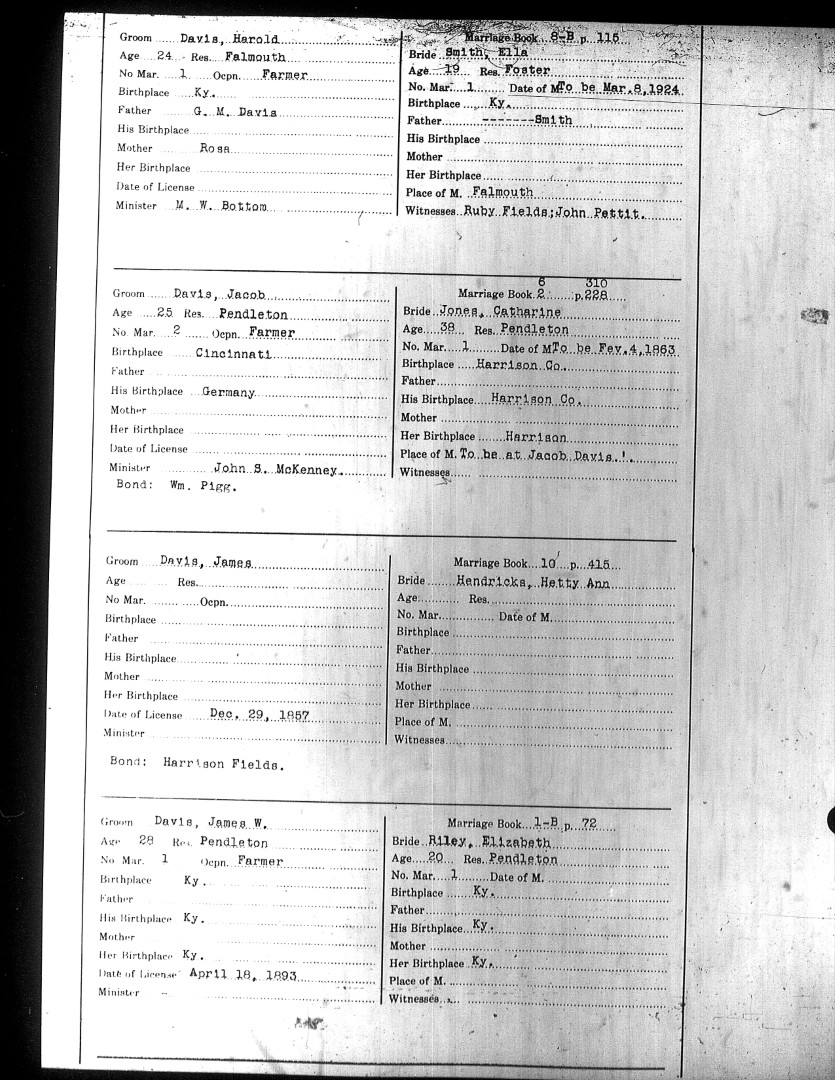 Groom Davis, Harold
Age 24 Res. Falmouth
No Mar. 1 Ocpn. Farmer
Birthplace Ky.
Father G. M. Davis
His Birthplace
Mother Rosa
Her Birthplace
Date of License
Minister M. W. Bottom
Marriage Book 8-B p. 115
Bride Smith, Ella
Age 19 Res. Foster
No. Mar. 1 Date of M. To be Mar. 8, 1924
Birthplace Ky.
Father -------Smith
His Birthplace
Mother
Her Birthplace
Place of M. Falmouth
Witnesses Ruby Fields; John Pettit.
Groom Davis, Jacob
Age 25 Res. Pendleton
No. Mar. 2 Ocpn. Farmer
Birthplace Cincinnati
Father
His Birthplace Germany
Mother
Her Birthplace
Date of License
Minister John S. McKenney.
Bond: Wm. Pigg.
6 310
Marriage Book 2 p. 228
Bride Jones, Catharine
Age 38 Res. Pendleton
No. Mar. 1 Date of M. To be Fev. 4, 1863
Birthplace Harrison Co.
Father
His Birthplace Harrison Co.
Mother
Her Birthplace Harrison
Place of M. To be at Jacob Davis'.
Witnesses
Groom Davis, James
Age Res.
No Mar. Ocpn.
Birthplace
Father
His Birthplace
Mother
Her Birthplace
Date of License Dec. 29, 1857
Minister
Bond: Harrison Fields.
Marriage Book 10 p. 415
Bride Hendricks, Hetty Ann
Age Res.
No. Mar. Date of M.
Birthplace
Father
His Birthplace
Mother
Her Birthplace
Place of M.
Witnesses
Groom Davis, James W.
Age 28 Res. Pendleton
No Mar. 1 Ocpn. Farmer
Birthplace Ky.
Father
His Birthplace Ky.
Mother
Her Birthplace Ky.
Date of License April 18, 1893
Minister
Marriage Book 1-B p. 72
Bride Riley, Elizabeth
Age 20 Res. Pendleton
No. Mar. 1 Date of M.
Birthplace Ky.
Father
His Birthplace Ky.
Mother
Her Birthplace Ky.
Place of M.
Witnesses